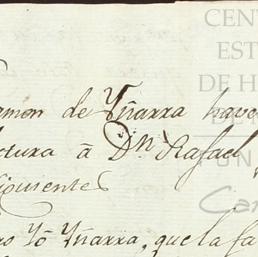 CEN
EST
DE H
FUN
Ca
de Yñarra have
ctura â Dn Rafael
siguientes
Yo Yñarra, que la fa